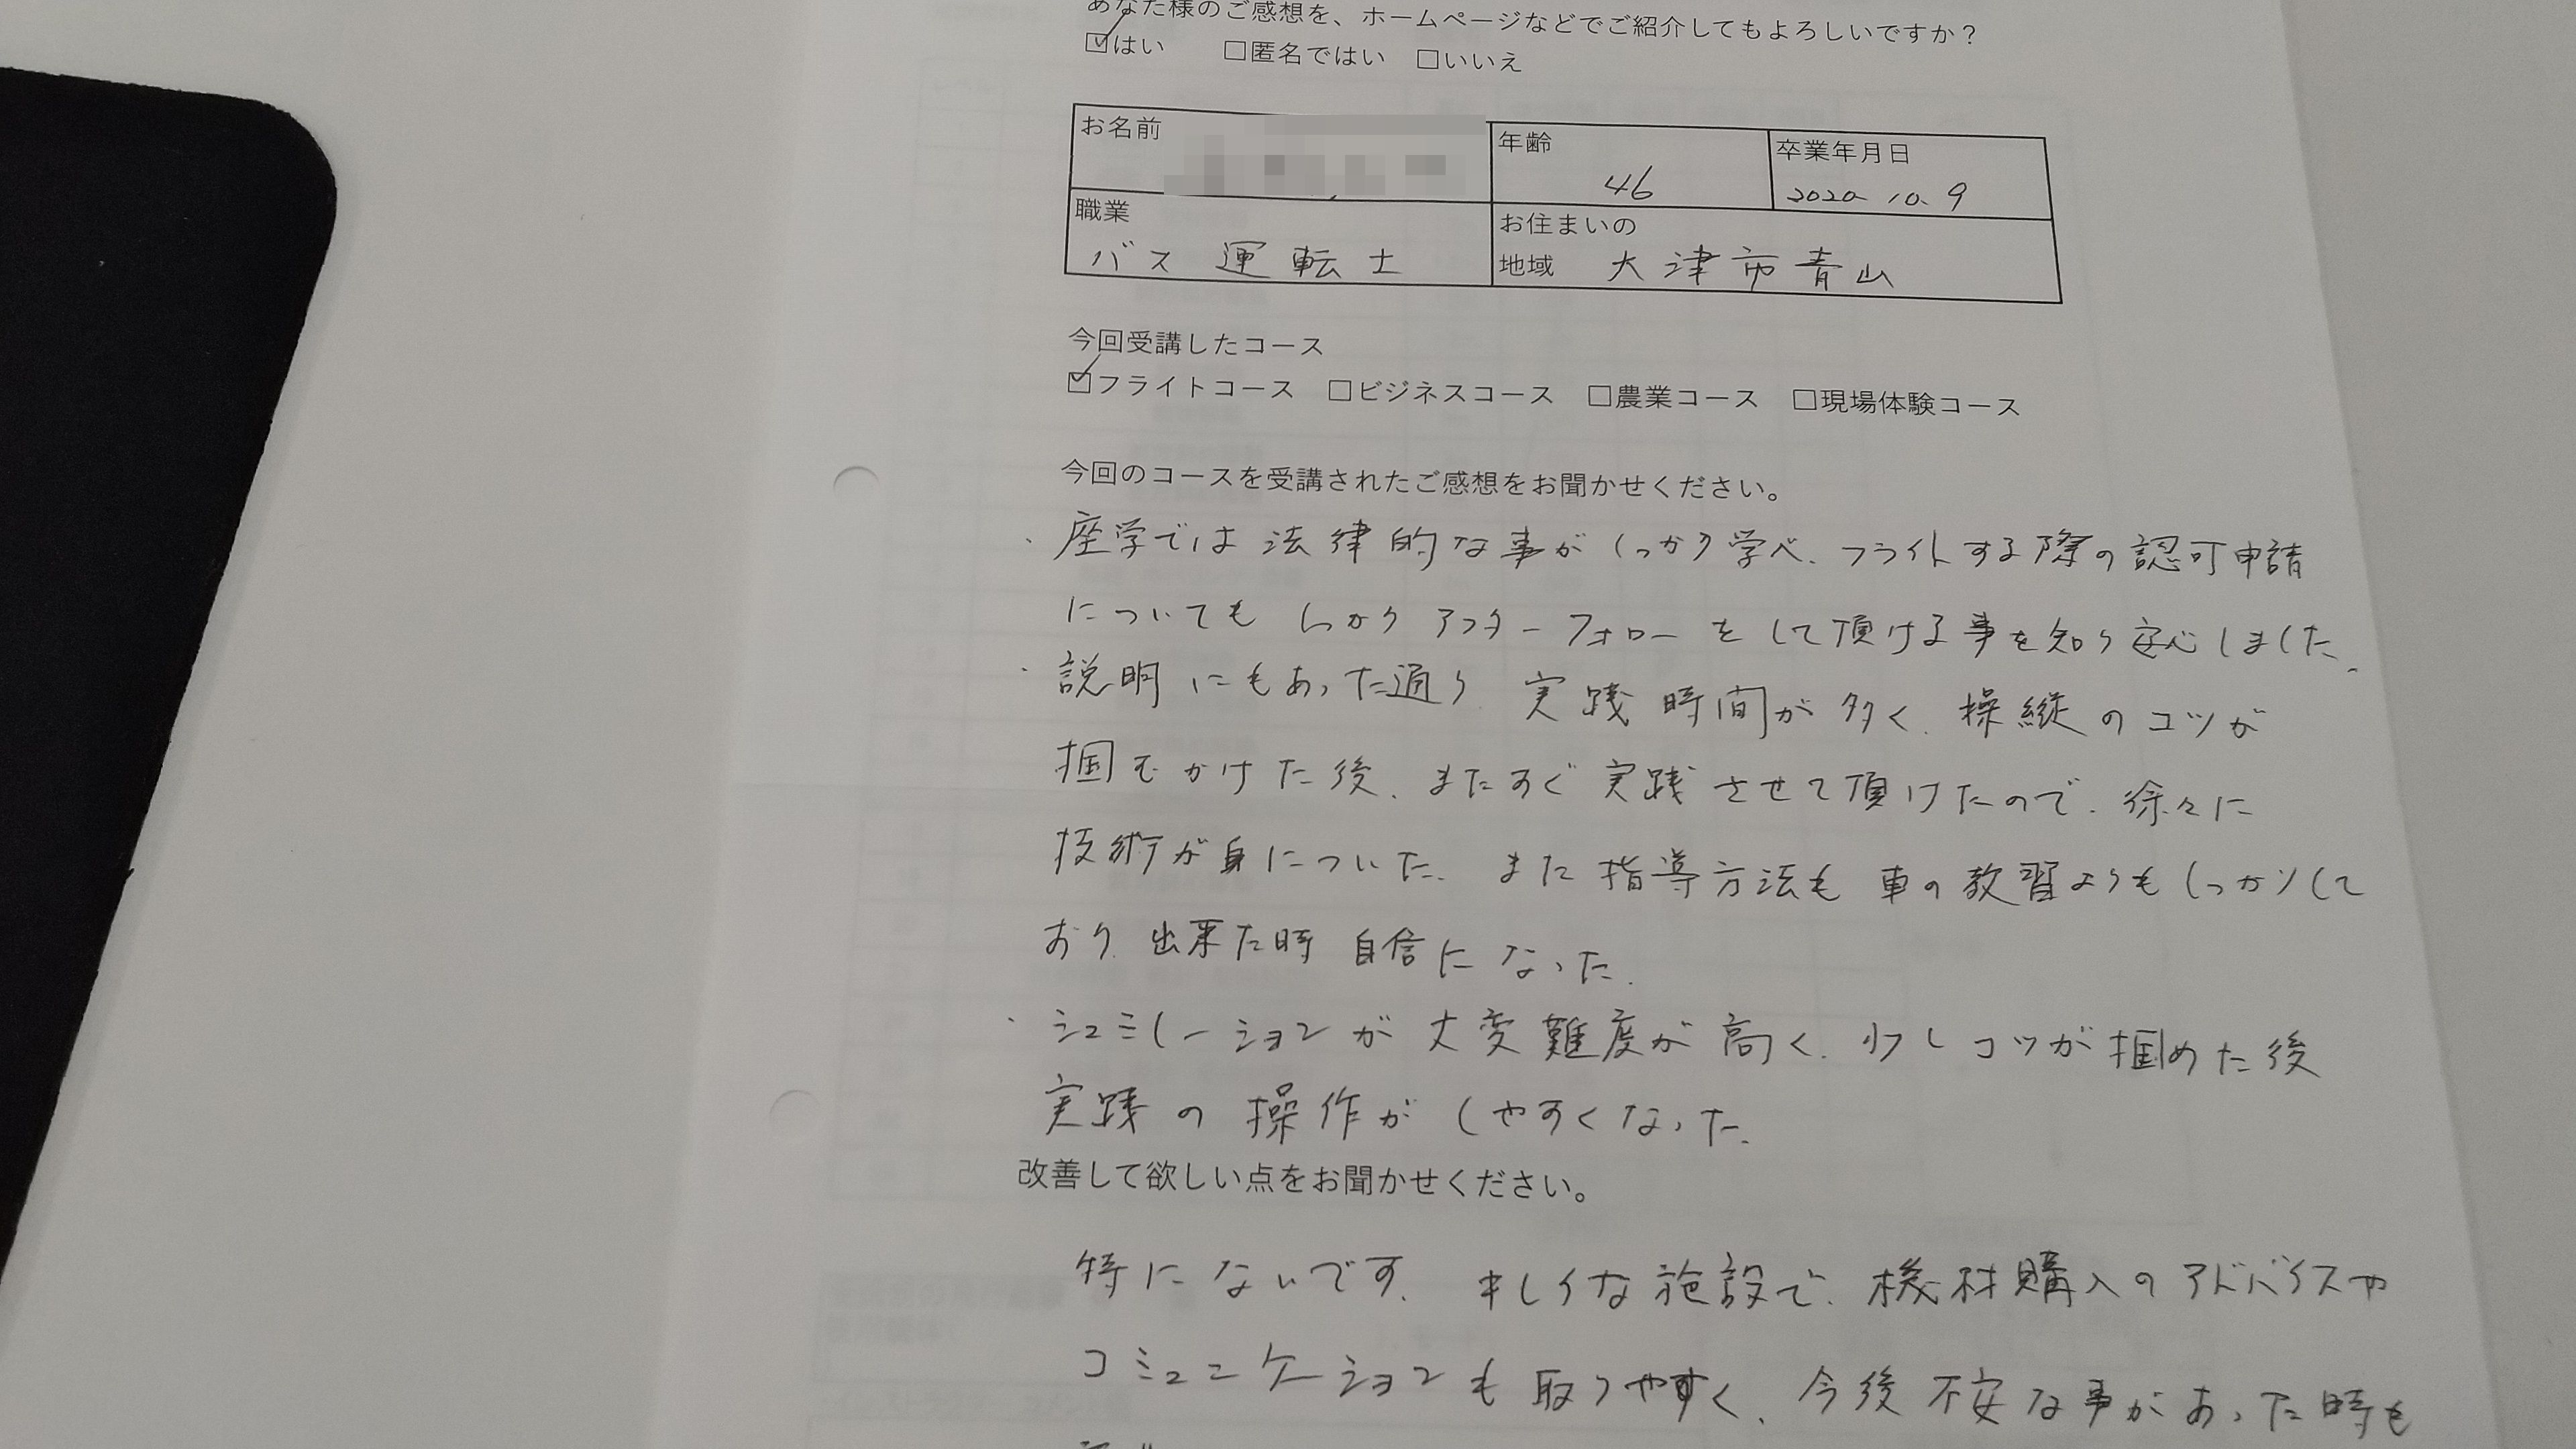 あなた様のご感想を、ホームページなどでご紹介してもよろしいですか？
☑はい □匿名ではい □いいえ
お名前 年齢 46 卒業年月日 2020.10.9
職業 バス運転士 お住まいの地域 大津市青山
今回受講したコース
☑フライトコース □ビジネスコース □農業コース □現場体験コース
今回のコースを受講されたご感想をお聞かせください。
・座学では法律的な事がしっかり学べ、フライトする際の認可申請
についてもしっかりアフターフォローをして頂ける事を知り安心しました。
・説明にもあった通り実践時間が多く、操縦のコツが
掴むかけた後、またすぐ実践させて頂けたので、徐々に
技術が身についた。また指導方法も車の教習よりもしっかりして
おり、出来た時自信になった。
・シュミレーションが大変難度が高く、少しコツが掴めた後
実践の操作がしやすくなった。
改善して欲しい点をお聞かせください。
特にないです。キレイな施設で、機材購入のアドバイスや
コミュニケーションも取りやすく、今後不安な事があった時も